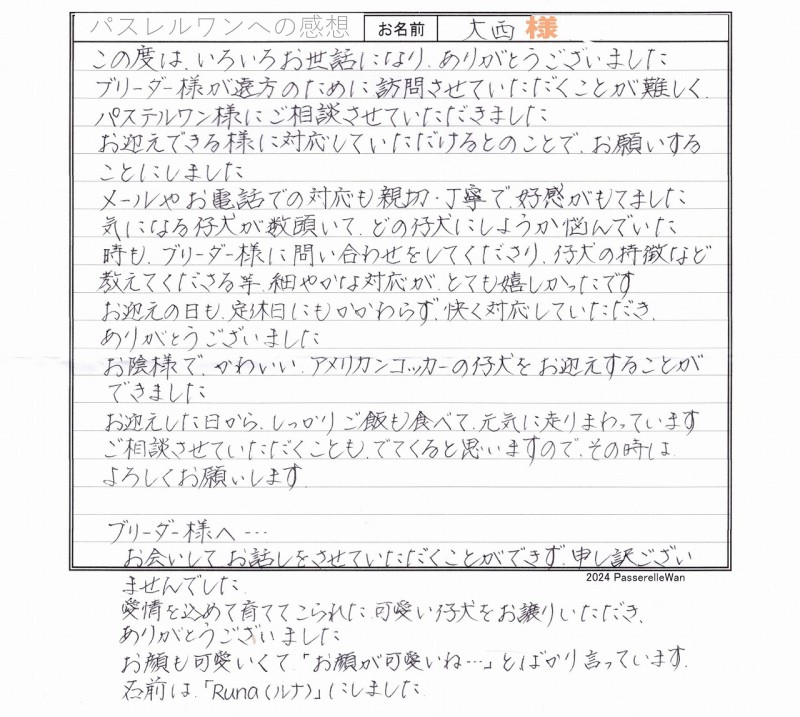 パスレルワンへの感想 お名前 大西 様
この度は、いろいろお世話になり、ありがとうございました
ブリーダー様が遠方のために訪問させていただくことが難しく、
パステルワン様にご相談させていただきました
お迎えできる様に対応していただけるとのことで、お願いする
ことにしました
メールやお電話での対応も親切・丁寧で、好感がもてました
気になる仔犬が数頭いて、どの仔犬にしようか悩んでいた
時も、ブリーダー様に問い合わせをしてくださり、仔犬の特徴など
教えてくださる等、細やかな対応が、とても嬉しかったです
お迎えの日も、定休日にもかかわらず、快く対応していただき、
ありがとうございました
お陰様で、かわいい、アメリカンコッカーの仔犬をお迎えすることが
できました
お迎えした日から、しっかりご飯も食べて、元気に走りまわっています
ご相談させていただくことも、でてくると思いますので、その時は、
よろしくお願いします
ブリーダー様へ…
お会いして、お話しをさせていただくことができず、申し訳ござい
2024 PasserelleWan
ませんでした
愛情を込めて育ててこられた、可愛い仔犬をお譲りいただき、
ありがとうございました
お顔も可愛いくて、「お顔が可愛いね…」とばかり言っています。
名前は、「Runa(ルナ)」にしました